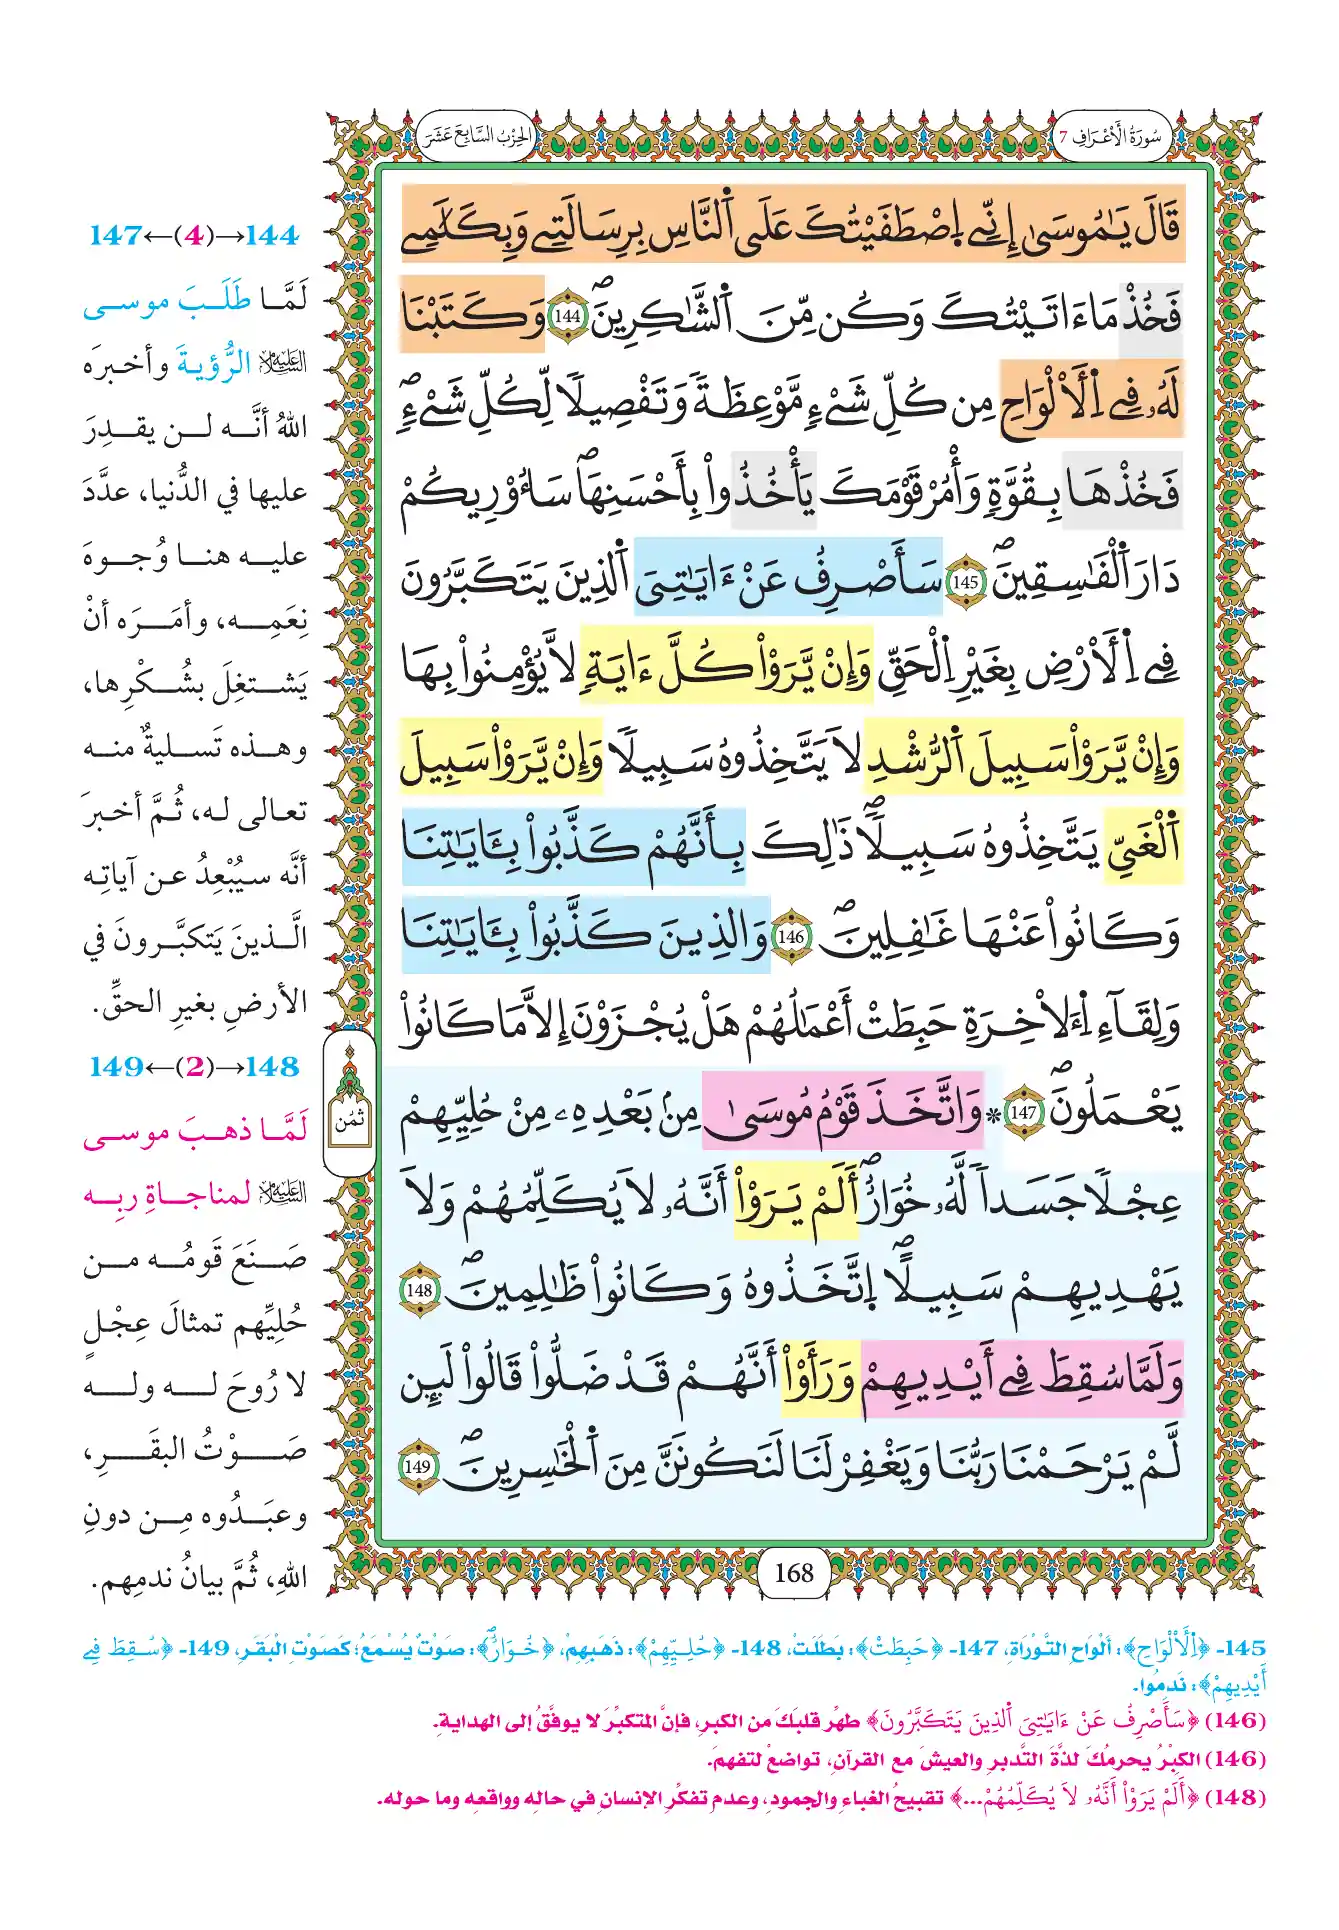 سُورَةُ الْأَعْرَافِ 7
الحِزْبُ السَّابِعَ عَشَرَ
قَالَ يَٰمُوسَىٰ إِنِّے اِ۪صْطَفَيْتُكَ عَلَى اَ۬لنَّاسِ بِرِسَالَتِے وَبِكَلَٰمِے
فَخُذْ مَا ءَاتَيْتُكَ وَكُن مِّنَ اَ۬لشَّٰكِرِينَۖ 144 وَكَتَبْنَا
لَهُۥ فِے اِ۬لَالْوَاحِ مِن كُلِّ شَےْءٖ مَّوْعِظَةٗ وَتَفْصِيلٗا لِّكُلِّ شَےْءٖۖ
فَخُذْهَا بِقُوَّةٖ وَأْمُرْ قَوْمَكَ يَأْخُذُواْ بِأَحْسَنِهَاۖ سَأُوْرِيكُمْ
دَارَ اَ۬لْفَٰسِقِينَۖ 145 سَأَصْرِفُ عَنْ ءَايَٰتِيَ اَ۬لذِينَ يَتَكَبَّرُونَ
فِے اِ۬لَارْضِ بِغَيْرِ اِ۬لْحَقِّ وَإِنْ يَّرَوْاْ كُلَّ ءَايَةٖ لَّا يُؤْمِنُواْ بِهَا
وَإِنْ يَّرَوْاْ سَبِيلَ اَ۬لرُّشْدِ لَا يَتَّخِذُوهُ سَبِيلٗا وَإِنْ يَّرَوْاْ سَبِيلَ
اَ۬لْغَيِّ يَتَّخِذُوهُ سَبِيلٗاۖ ذَٰلِكَ بِأَنَّهُمْ كَذَّبُواْ بِـَٔايَٰتِنَا
وَكَانُواْ عَنْهَا غَٰفِلِينَۖ 146 وَالذِينَ كَذَّبُواْ بِـَٔايَٰتِنَا
وَلِقَآءِ اِ۬لَاخِرَةِ حَبِطَتْ أَعْمَٰلُهُمْ هَلْ يُجْزَوْنَ إِلَّا مَا كَانُواْ
يَعْمَلُونَۖ 147 * وَاتَّخَذَ قَوْمُ مُوسَىٰ مِنۢ بَعْدِهِۦ مِنْ حُلِيِّهِمْ
عِجْلٗا جَسَداٗ لَّهُۥ خُوَارٌۖ أَلَمْ يَرَوْاْ أَنَّهُۥ لَا يُكَلِّمُهُمْ وَلَا
يَهْدِيهِمْ سَبِيلًاۖ اِ۪تَّخَذُوهُ وَكَانُواْ ظَٰلِمِينَۖ 148
وَلَمَّا سُقِطَ فِے أَيْدِيهِمْ وَرَأَوْاْ أَنَّهُمْ قَدْ ضَلُّواْ قَالُواْ لَئِن
لَّمْ يَرْحَمْنَا رَبُّنَا وَيَغْفِرْ لَنَا لَنَكُونَنَّ مِنَ اَ۬لْخَٰسِرِينَۖ 149
168
ثمن
144→(4)←147
لَمَّا طَلَبَ موسى
عليه السلام الرُّؤيةَ وأخبرَه
اللهُ أنَّه لن يقدِرَ
عليها في الدُّنيا، عدَّدَ
عليه هنا وُجوهَ
نِعَمِه، وأمَرَه أنْ
يَشتغِلَ بشُكْرِها،
وهذه تَسليةٌ منه
تعالى له، ثُمَّ أخبرَ
أنَّه سيُبْعِدُ عن آياتِه
الَّذينَ يَتكبَّرونَ في
الأرضِ بغيرِ الحقِّ.
148→(2)←149
لَمَّا ذهبَ موسى
عليه السلام لمناجاةِ ربِه
صَنَعَ قَومُه من
حُلِيِّهم تمثالَ عِجْلٍ
لا رُوحَ له وله
صَوْتُ البقَرِ،
وعبَدُوه مِن دونِ
اللهِ، ثُمَّ بيانُ ندمِهم.
145- ﴿اِ۬لَالْوَاحِ﴾: ألْوَاحِ التَّوْرَاةِ، 147- ﴿حَبِطَتْ﴾: بَطَلَتْ، 148- ﴿حُلِيِّهِمْ﴾: ذَهَبِهِمْ، ﴿خُوَارٌۖ﴾: صَوْتٌ يُسْمَعُ؛ كَصَوْتِ الْبَقَرِ، 149- ﴿سُقِطَ فِے
أَيْدِيهِمْ﴾: نَدِمُوا.
(146) ﴿سَأَصْرِفُ عَنْ ءَايَٰتِيَ اَ۬لذِينَ يَتَكَبَّرُونَ﴾ طهِّر قلبَكَ من الكبرِ، فإنَّ المتكبِّرَ لا يوفَّقُ إلى الهدايةِ.
(146) الكِبْرُ يحرمُكَ لذَّةَ التَّدبرِ والعيشَ مع القرآنِ، تواضعْ لتفهمَ.
(148) ﴿أَلَمْ يَرَوْاْ أَنَّهُۥ لَا يُكَلِّمُهُمْ...﴾ تقبيحُ الغباءِ والجمودِ، وعدم تفكُّرِ الإنسانِ في حالِه وواقعِه وما حوله.